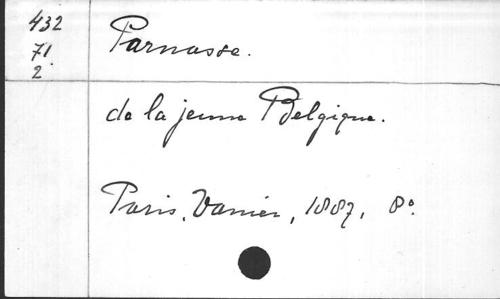 432
71.
2
Parnasse.
de la jeune Belgique.
Paris, Vanier, 1887, 8°.